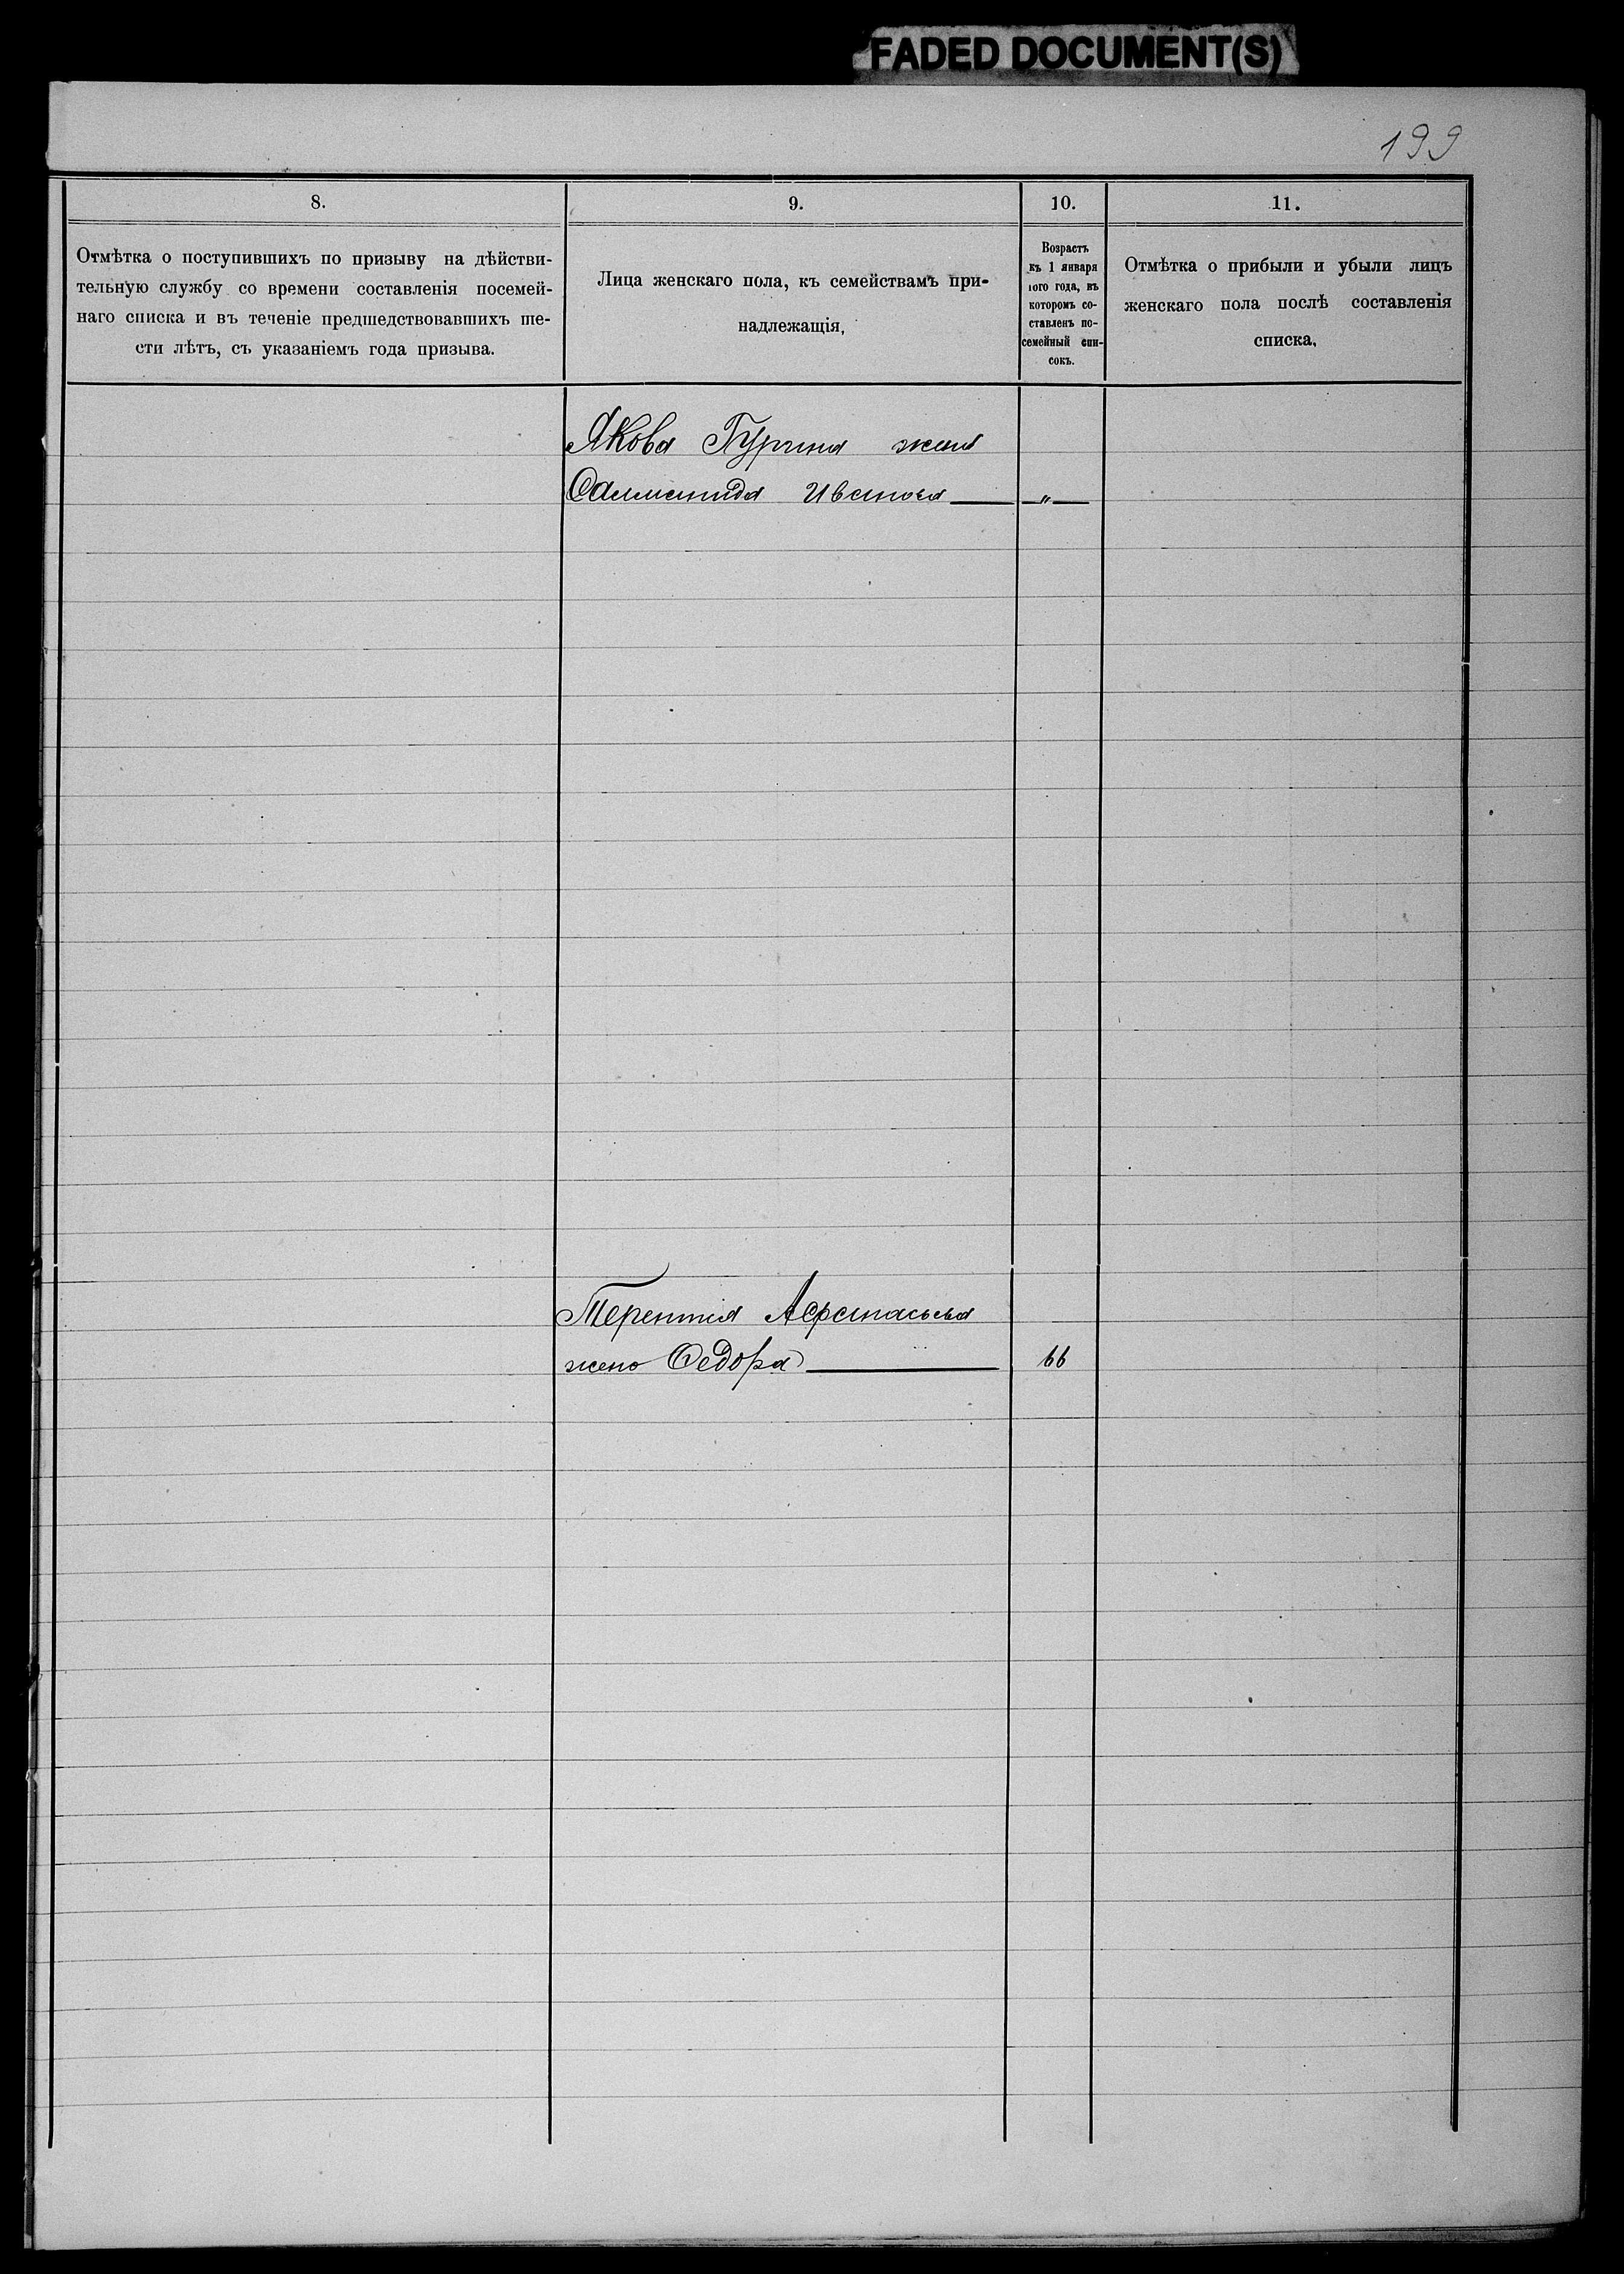 FADED DOCUMENT(S)
199
8.
Отмѣтка о поступившихъ по призыву на дѣйстви-
тельную службу со времени составленія посемей-
наго списка и въ теченіе предшедствовавшихъ ше-
сти лѣтъ, съ указаніемъ года призыва.
9.
Лица женскаго пола, къ семействамъ при-
надлежащія,
10.
Возрастъ
къ 1 января
того года, въ
которомъ со-
ставленъ по-
семейный спи-
сокъ.
11.
Отмѣтка о прибыли и убыли лицъ
женскаго пола послѣ составленія
списка.
Якова Гурина жена
Иванова — „ —
Терентія Афанасьева
жена Ѳедора — 66